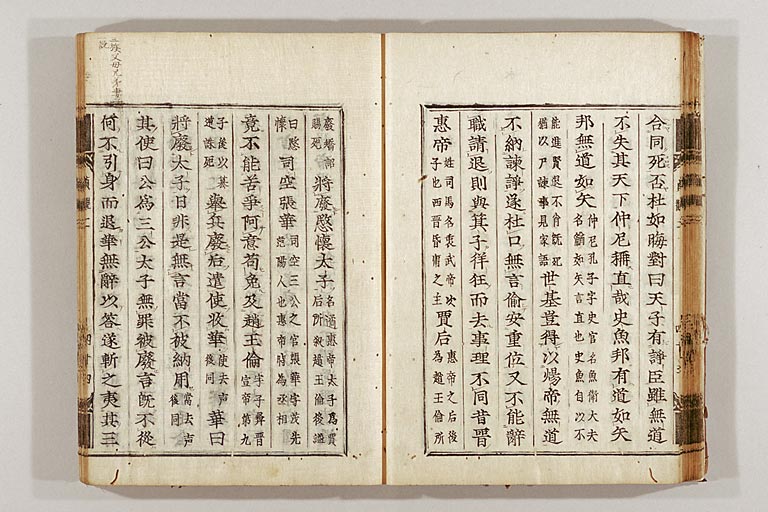 合同死否杜如晦對曰天子有諍臣雖無道
不失其天下仲尼稱直哉史魚邦有道如矢
邦無道如矢 仲尼孔子字史官名魚衛大夫
名鰌如矢言直也史魚自以不
能進賢退不肖旣死
猶以尸諫事見家語 世基豈得以煬帝無道
不納諫諍遂杜口無言偷安重位又不能辭
職請退則與箕子徉狂而去事理不同昔晉
惠帝 姓司馬名衷武帝次
子也西晉昏庸之主 賈后 惠帝之后後
為趙王倫所
廢 將廢愍懷太子 名遹惠帝太子爲賈
后所殺趙王倫後謚
曰愍
懷 司空張華 司空三公之官張華字茂先
范陽人也惠帝時為丞相
竟不能苦爭阿意苟免及趙王倫 字子彛晉
宣帝第九
子後以
道誅死 舉兵廢后遣使收華 使去声
後同 華曰
將廢太子日非是無言當不被納用 當去声
後同
其使曰公爲三公太子無罪被廢言旣不從
何不引身而退華無辭以答遂斬之夷其三
三族父母兄弟妻